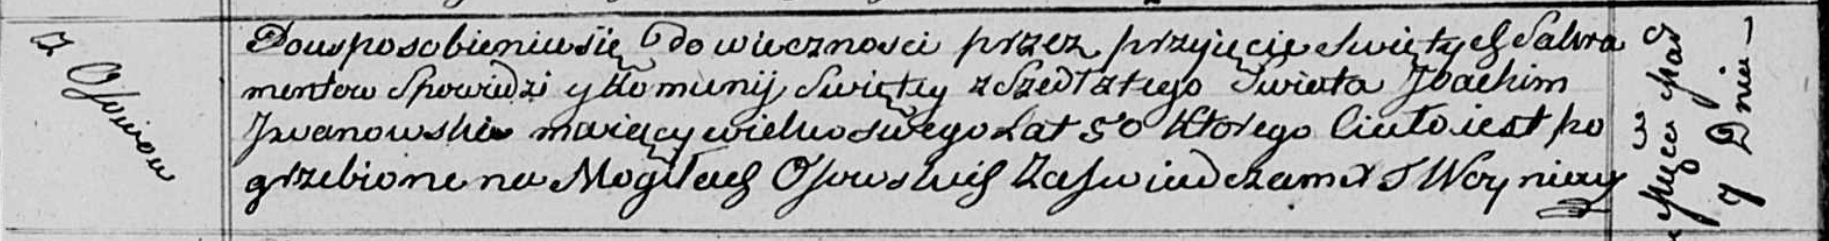 z Osowow
Po usposobieniu się do wieczności przez przyięcie Swiętych Sakra
mentow Spowiedzi y Komunij Swiętey zszedł z tego Swiata Joachim
Iwanowski maiący wieku swego Lat 50 Ktorego Ciało iest po
grzebione na Mogiłach Osowskich Zaswiadczam X J Woyniay
7 Dnia